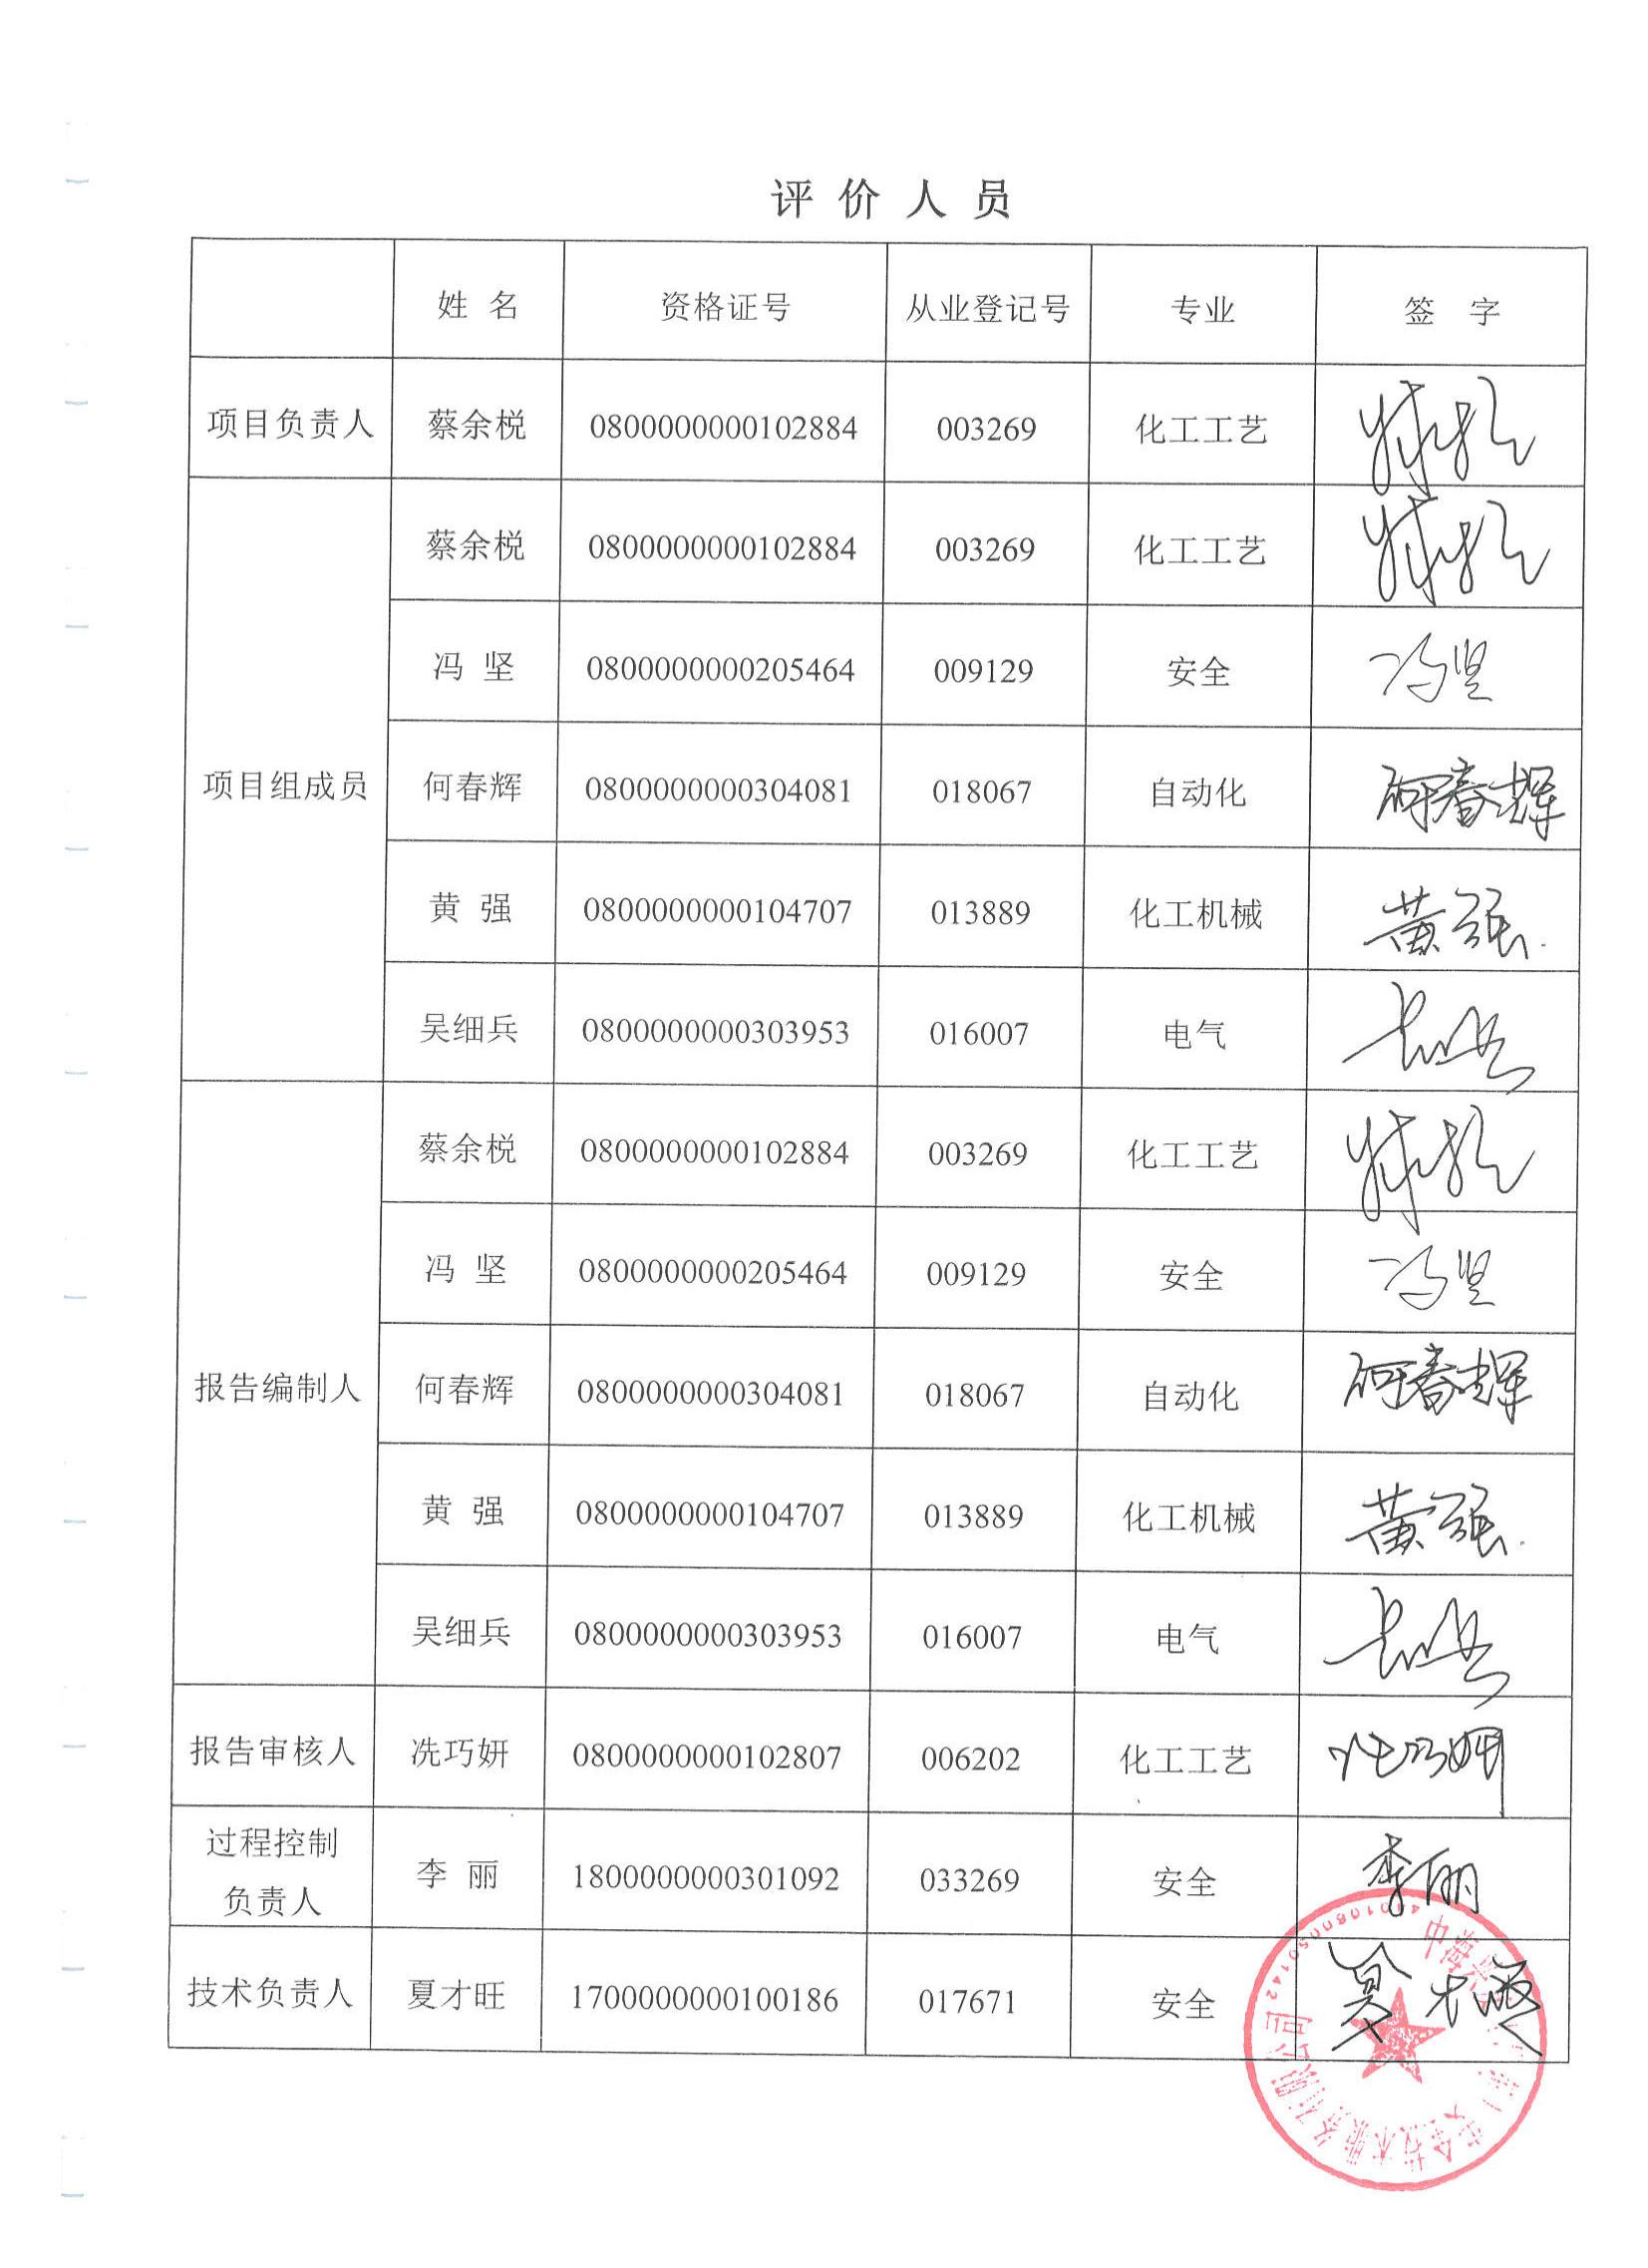 评 价 人 员
姓 名 资格证号 从业登记号 专业 签 字
项目负责人 蔡余棁 0800000000102884 003269 化工工艺
项目组成员 蔡余棁 0800000000102884 003269 化工工艺
冯 坚 0800000000205464 009129 安全 冯坚
何春辉 0800000000304081 018067 自动化 何春辉
黄 强 0800000000104707 013889 化工机械 黄强
吴细兵 0800000000303953 016007 电气
报告编制人 蔡余棁 0800000000102884 003269 化工工艺
冯 坚 0800000000205464 009129 安全 冯坚
何春辉 0800000000304081 018067 自动化 何春辉
黄 强 0800000000104707 013889 化工机械 黄强
吴细兵 0800000000303953 016007 电气
报告审核人 冼巧妍 0800000000102807 006202 化工工艺 冼巧妍
过程控制
负责人 李 丽 1800000000301092 033269 安全 李丽
技术负责人 夏才旺 1700000000100186 017671 安全 夏才旺
安全技术服务有限公司